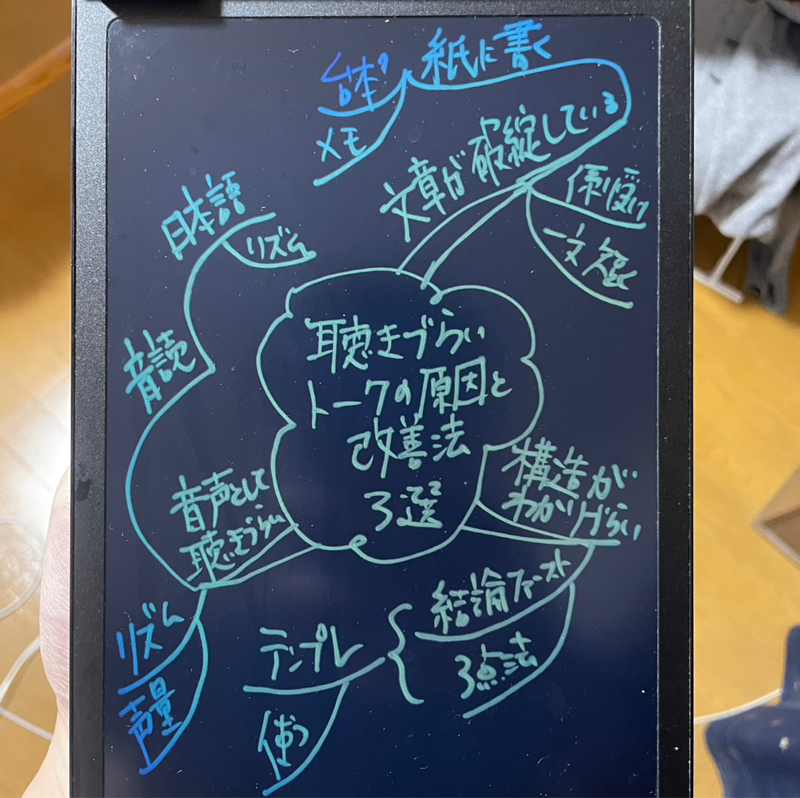 台本
紙に書く
メモ
文章が破綻している
係り受け
一文欠く
日本語
リズム
音読
聴きづらい
トークの原因と
改善法
3選
構造が
わかりづらい
音声として
聴きづらい
結論ファースト
3点法
テンプレ
使う
リズム
声量